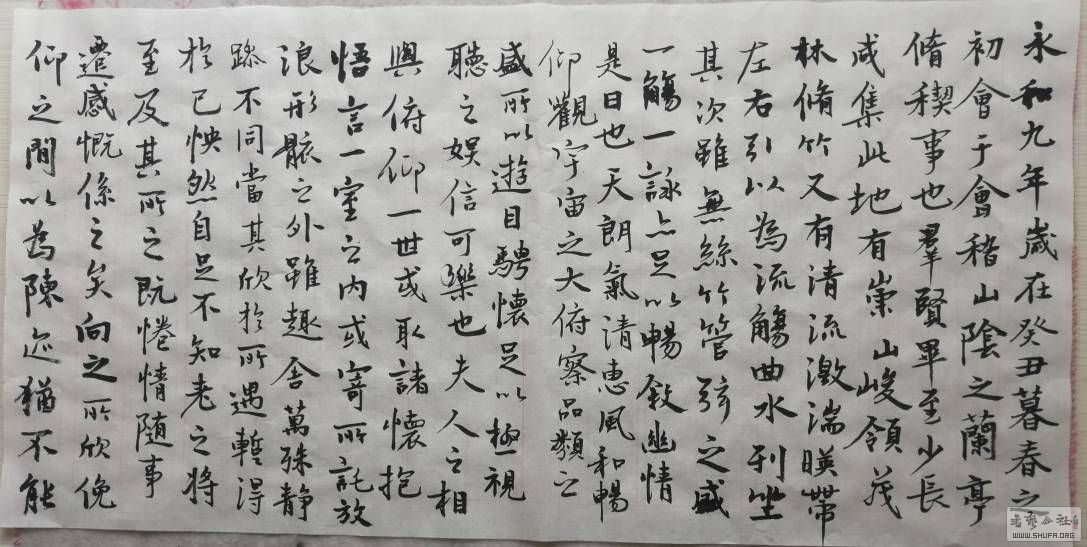 永和九年歲在癸丑暮春之
初會于會稽山陰之蘭亭
脩稧事也羣賢畢至少長
咸集此地有崇山峻領茂
林脩竹又有清流激湍暎帶
左右引以為流觴曲水列坐
其次雖無絲竹管弦之盛
一觴一詠亦足以暢敘幽情
是日也天朗氣清惠風和暢
仰觀宇宙之大俯察品類之
盛所以遊目騁懷足以極視
聽之娛信可樂也夫人之相
與俯仰一世或取諸懷抱
悟言一室之內或寄所託放
浪形骸之外雖趣舍萬殊靜
躁不同當其欣於所遇暫得
於己怏然自足不知老之將
至及其所之既惓情隨事
遷感慨係之矣向之所欣俛
仰之間以為陳迹猶不能
書藝公社
WWW.SHUFA.ORG